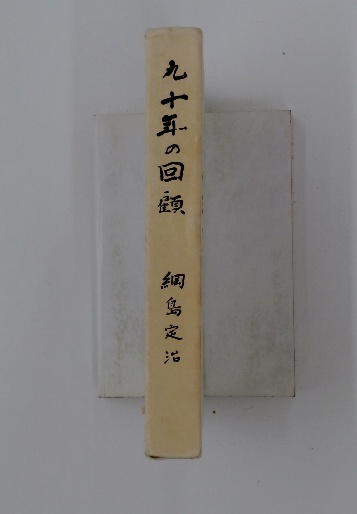 九十年の回顧
綱島定治